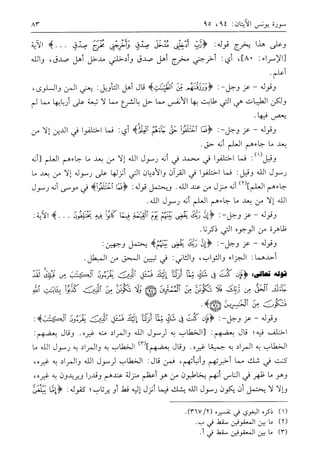 سورة يونس الآيتان: ٩٤، ٩٥ ٨٣
وعلى هذا يخرج قوله: ﴿رَّبِّ أَدْخِلْنِي مُدْخَلَ صِدْقٍ وَأَخْرِجْنِي مُخْرَجَ صِدْقٍ ...﴾ الآية
[الإسراء: ٨٠]، أي: أخرجني مخرج أهل صدق وأدخلني مدخل أهل صدق، والله
أعلم.
وقوله - عز وجل -: ﴿وَرَزَقْنَاهُم مِّنَ الطَّيِّبَاتِ﴾ قال أهل التأويل: يعني المن والسلوى،
ولكن الطيبات هي التي طابت بها الأنفس مما حل بالشرع مما لا تبعة على أربابها مما لم
يعص فيها.
وقوله - عز وجل -: ﴿فَمَا اخْتَلَفُوا حَتَّى جَاءَهُمُ الْعِلْمُ﴾ أي: فما اختلفوا في الدين إلا من
بعد ما جاءهم العلم أنه حق.
وقيل(١): فما اختلفوا في محمد في أنه رسول الله إلا من بعد ما جاءهم العلم [أنه
رسول الله وقيل: فما اختلفوا في القرآن والأديان التي أنزلها على رسوله إلا من بعد ما
جاءهم العلم](٢) أنه منزل من عند الله. ويحتمل قوله: ﴿فَمَا اخْتَلَفُوا﴾ في موسى أنه رسول
الله إلا من بعد ما جاءهم العلم أنه رسول الله.
وقوله - عز وجل -: ﴿إِنَّ رَبَّكَ يَقْضِي بَيْنَهُمْ يَوْمَ الْقِيَامَةِ فِيمَا كَانُوا فِيهِ يَخْتَلِفُونَ ...﴾ الآية:
ظاهرة من الوجوه التي ذكرنا.
وقوله - عز وجل -: ﴿إِنَّ رَبَّكَ يَقْضِي بَيْنَهُمْ﴾ يحتمل وجهين:
أحدهما: الجزاء والثواب، والثاني: في تبيين المحق من المبطل.
قوله تعالى: ﴿فَإِن كُنتَ فِي شَكٍّ مِّمَّا أَنزَلْنَا إِلَيْكَ فَسْئَلِ الَّذِينَ يَقْرَءُونَ الْكِتَابَ مِن قَبْلِكَ لَقَدْ
جَاءَكَ الْحَقُّ مِن رَّبِّكَ فَلَا تَكُونَنَّ مِنَ الْمُمْتَرِينَ ﴿٩٤﴾ وَلَا تَكُونَنَّ مِنَ الَّذِينَ كَذَّبُوا بِآيَاتِ اللَّهِ
فَتَكُونَ مِنَ الْخَاسِرِينَ ﴿٩٥﴾﴾
وقوله - عز وجل -: ﴿فَإِن كُنتَ فِي شَكٍّ مِّمَّا أَنزَلْنَا إِلَيْكَ فَسْئَلِ الَّذِينَ يَقْرَءُونَ الْكِتَابَ﴾:
اختلف فيه؛ قال بعضهم: [الخطاب به لرسول الله والمراد منه غيره. وقال بعضهم:
الخطاب به المراد به جميعًا غيره. وقال بعضهم](٣) الخطاب به والمراد به رسول الله ما
كنت في شك مما أخبرتهم وأنبأتهم، فمن قال: الخطاب لرسول الله والمراد به غيره،
وهو ما ظهر في الناس أنهم يخاطبون من هو أعظم منزلة عندهم وقدرا ويريدون به غيره،
وإلا لا يحتمل أن يكون رسول الله يشك فيما أنزل إليه قط أو يرتاب؛ كقوله: ﴿إِمَّا يَبْلُغَنَّ
(١) ذكره البغوي في تفسيره (٢/ ٣٦٧).
(٢) ما بين المعقوفين سقط في ب.
(٣) ما بين المعقوفين سقط في أ.